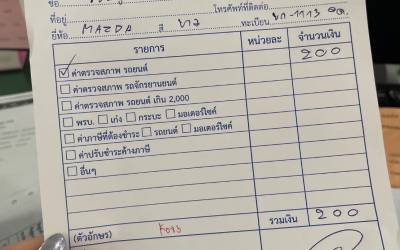 ชื่อ
ที่อยู่ โทรศัพท์ที่ติดต่อ
ยี่ห้อ MAZDA สี ขาว ทะเบียน
รายการ หน่วยละ จำนวนเงิน
ค่าตรวจสภาพ รถยนต์ 200
ค่าตรวจสภาพ รถจักรยานยนต์
ค่าตรวจสภาพ รถยนต์ เกิน 2,000
พรบ. เก๋ง กระบะ มอเตอร์ไซค์
ค่าภาษีที่ต้องชำระ รถยนต์ มอเตอร์ไซค์
ค่าปรับชำระค้างภาษี
อื่นๆ
(ตัวอักษร) รวมเงิน 200